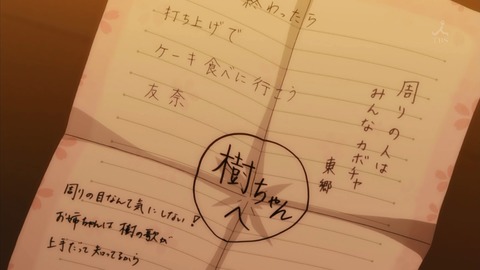 終わったら
打ち上げで
ケーキ食べに行こう
友奈
周りの人は
みんなカボチャ
東郷
樹ちゃん
へ
周りの目なんて気にしない!
お姉ちゃんは樹の歌が
上手だって知ってるから